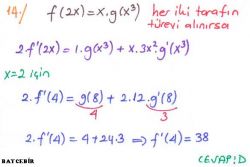 14./ f(2x)=x.g(x³) her iki tarafın
türevi alınırsa
2f'(2x)=1.g(x³)+x.3x²g'(x³)
x=2 için
2.f'(4)=g(8)+2.12.g'(8)
4 3
2.f'(4)=4+24.3 ⇒ f'(4)=38
BAYCEBİR CEVAP:D